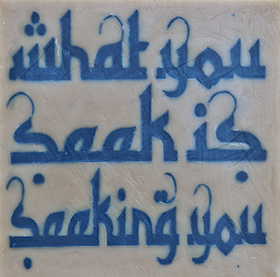 what you
seek is
seeking you